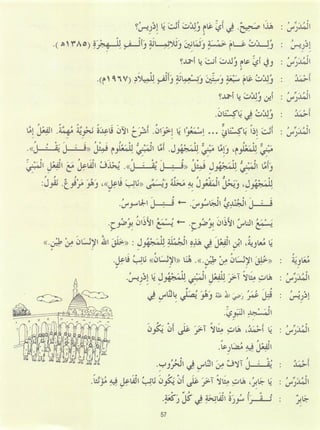 المُدَرِّسُ : هَذَا صَحِيحٌ. فِي أَيِّ عَامٍ وُلِدْتَ أَنْتَ يَا إِدْرِيسُ؟
إِدْرِيسُ : وُلِدْتُ عَامَ خَمْسَةٍ وَثَمَانِينَ وَثَلَاثِمِائَةٍ وَأَلْفٍ لِلْهِجْرَةِ (١٣٨٥هـ).
المُدَرِّسُ : وَفِي أَيِّ عَامٍ وُلِدْتَ أَنْتَ يَا أَحْمَدُ؟
أَحْمَدُ : وُلِدْتُ عَامَ سَبْعَةٍ وَسِتِّينَ وَتِسْعِمِائَةٍ وَأَلْفٍ لِلْمِيلَادِ (١٩٦٧م).
المُدَرِّسُ : أَيْنَ وُلِدْتَ يَا أَحْمَدُ؟
أَحْمَدُ : وُلِدْتُ فِي بَاكِسْتَانَ.
المُدَرِّسُ : أَنْتَ إِذَنْ بَاكِسْتَانِيٌّ ... اِسْمَعُوا يَا إِخْوَانُ. أَشْرَحُ الآنَ قَاعِدَةً نَحْوِيَّةً مُهِمَّةً. الفِعْلُ إِمَّا
مَبْنِيٌّ لِلْمَعْلُومِ، وَإِمَّا مَبْنِيٌّ لِلْمَجْهُولِ. أَمَّا المَبْنِيُّ لِلْمَعْلُومِ فَمِثْلُ «قَتَلَ - يَقْتُلُ».
وَأَمَّا المَبْنِيُّ لِلْمَجْهُولِ فَمِثْلُ «قُتِلَ - يُقْتَلُ». يُحْذَفُ الفَاعِلُ مَعَ الفِعْلِ المَبْنِيِّ
لِلْمَجْهُولِ، وَيَحُلُّ المَفْعُولُ بِهِ مَحَلَّهُ وَيُسَمَّى «نَائِبَ فَاعِلٍ»، وَهُوَ مَرْفُوعٌ. نَقُولُ:
قَتَلَ الجُنْدِيُّ الجَاسُوسَ. ← قُتِلَ الجَاسُوسُ.
يَسْمَعُ النَّاسُ الأَذَانَ بِوُضُوحٍ. ← يُسْمَعُ الأَذَانُ بِوُضُوحٍ.
يَا مُعَاوِيَةُ، ابْنِ الفِعْلَ فِي هَذِهِ الجُمْلَةِ لِلْمَجْهُولِ : «خَلَقَ اللهُ الإِنْسَانَ مِنْ طِينٍ».
مُعَاوِيَةُ : «خُلِقَ الإِنْسَانُ مِنْ طِينٍ». هُنَا «الإِنْسَانُ» نَائِبُ فَاعِلٍ.
المُدَرِّسُ : هَاتِ مِثَالًا آخَرَ لِلْفِعْلِ المَبْنِيِّ لِلْمَجْهُولِ يَا إِدْرِيسُ.
إِدْرِيسُ : قُتِلَ عُمَرُ رضي الله عنه وَهُوَ يُصَلِّي بِالنَّاسِ فِي
المَسْجِدِ النَّبَوِيِّ.
المُدَرِّسُ : يَا أَحْمَدُ، هَاتِ مِثَالًا آخَرَ عَلَى أَنْ يَكُونَ
فِيهِ الفِعْلُ مُضَارِعًا.
أَحْمَدُ : يُقْتَلُ آلَافٌ مِنَ النَّاسِ فِي الحُرُوبِ.
المُدَرِّسُ : يَا جَابِرُ، هَاتِ مِثَالًا آخَرَ عَلَى أَنْ يَكُونَ نَائِبُ الفَاعِلِ فِيهِ مُؤَنَّثًا.
جَابِرٌ : تُقْرَأُ سُورَةُ الفَاتِحَةِ فِي كُلِّ رَكْعَةٍ.
57